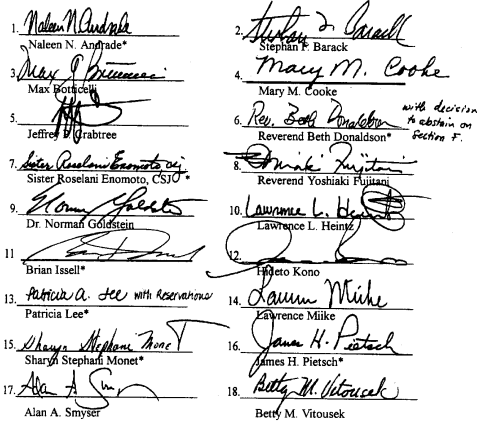 1. Naleen N. Andrade
Naleen N. Andrade*
2. Stephan L. Barack
Stephan F. Barack
3. Max J Botticelli
Max Botticelli
4. Mary M. Cooke
Mary M. Cooke
5.
Jeffrey Crabtree
6. Rev. Beth Donaldson with decision to abstain on Section F.
Reverend Beth Donaldson*
7. Sister Roselani Enomoto csj
Sister Roselani Enomoto, CSJ *
8. Yoshiaki Fujitani
Reverend Yoshiaki Fujitani
9. Norman Goldstein
Dr. Norman Goldstein
10. Lawrence L. Heintz
Lawrence L. Heintz
11
Brian Issell*
12.
Hideto Kono
13. Patricia A. Lee with Reservations
Patricia Lee*
14. Lawrence Miike
Lawrence Miike
15. Sharyn Stephani Monet
Sharyn Stephani Monet*
16. James H. Pietsch
James H. Pietsch*
17. Alan A Smyser
Alan A. Smyser
18. Betty M. Vitousek
Betty M. Vitousek